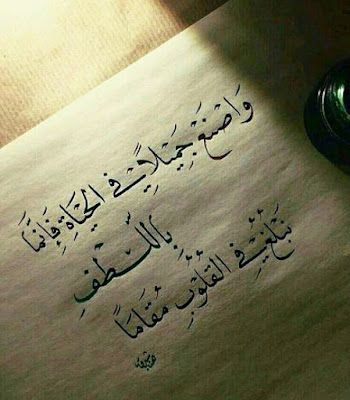 وَاصْنَعْ جَمِيْلاً في الحَيَاةِ فَإِنَّمَا
بِاللُّطْفِ
نَبْلُغُ في القُلُوْبِ مُقَامَا